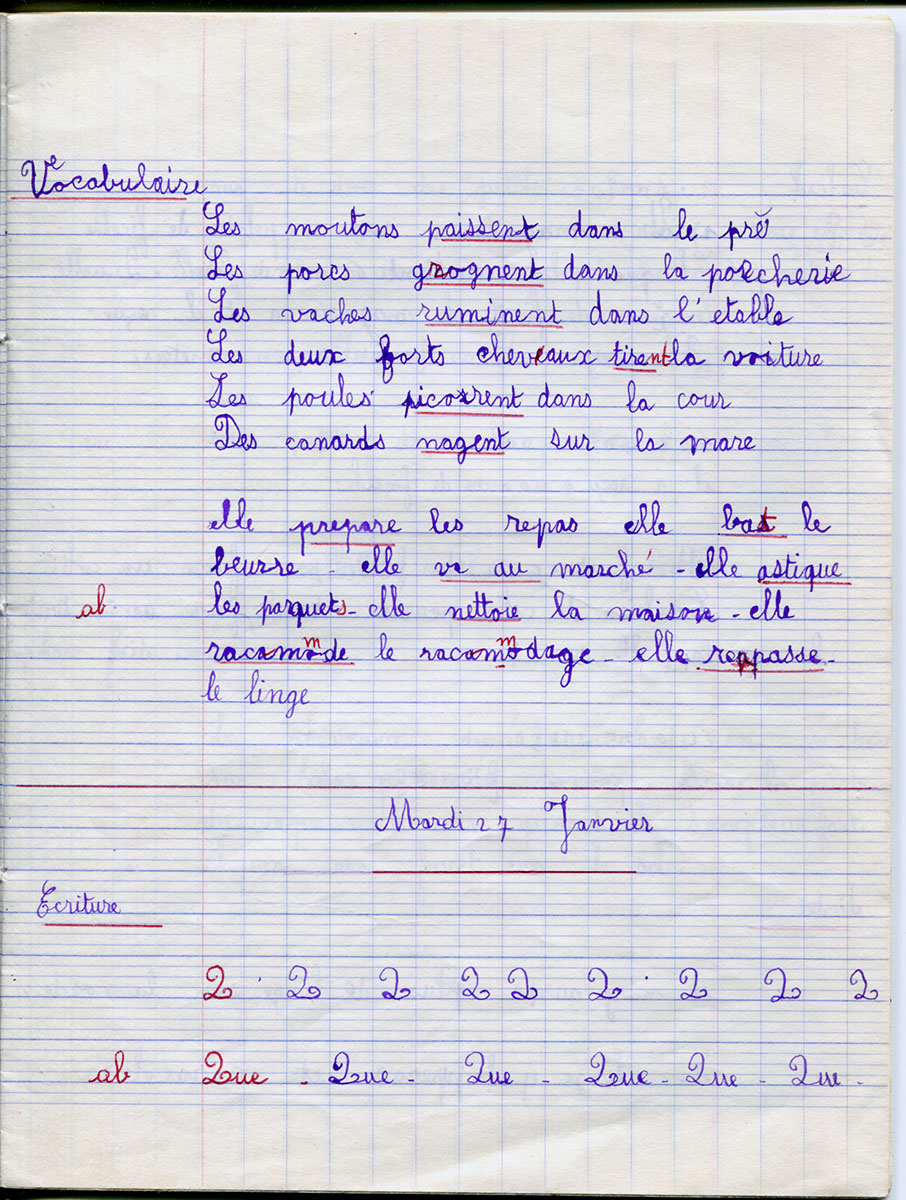 Vocabulaire
Les moutons paissent dans le pré
Les porcs grognent dans la porcherie
Les vaches ruminent dans l'etable
Les deux forts chevaux tirent la voiture
Les poules picorent dans la cour
Des canards nagent sur la mare
elle prepare les repas elle bat le
beurre - elle va au marché - elle astique
ab les parquets - elle nettoie la maison - elle
racammode le racammodage - elle repasse -
le linge
Mardi 27 Janvier
Ecriture
2 2 2 2 2 2 2 2 2
ab 2ue - 2ue - 2ue - 2ue - 2ue - 2ue -